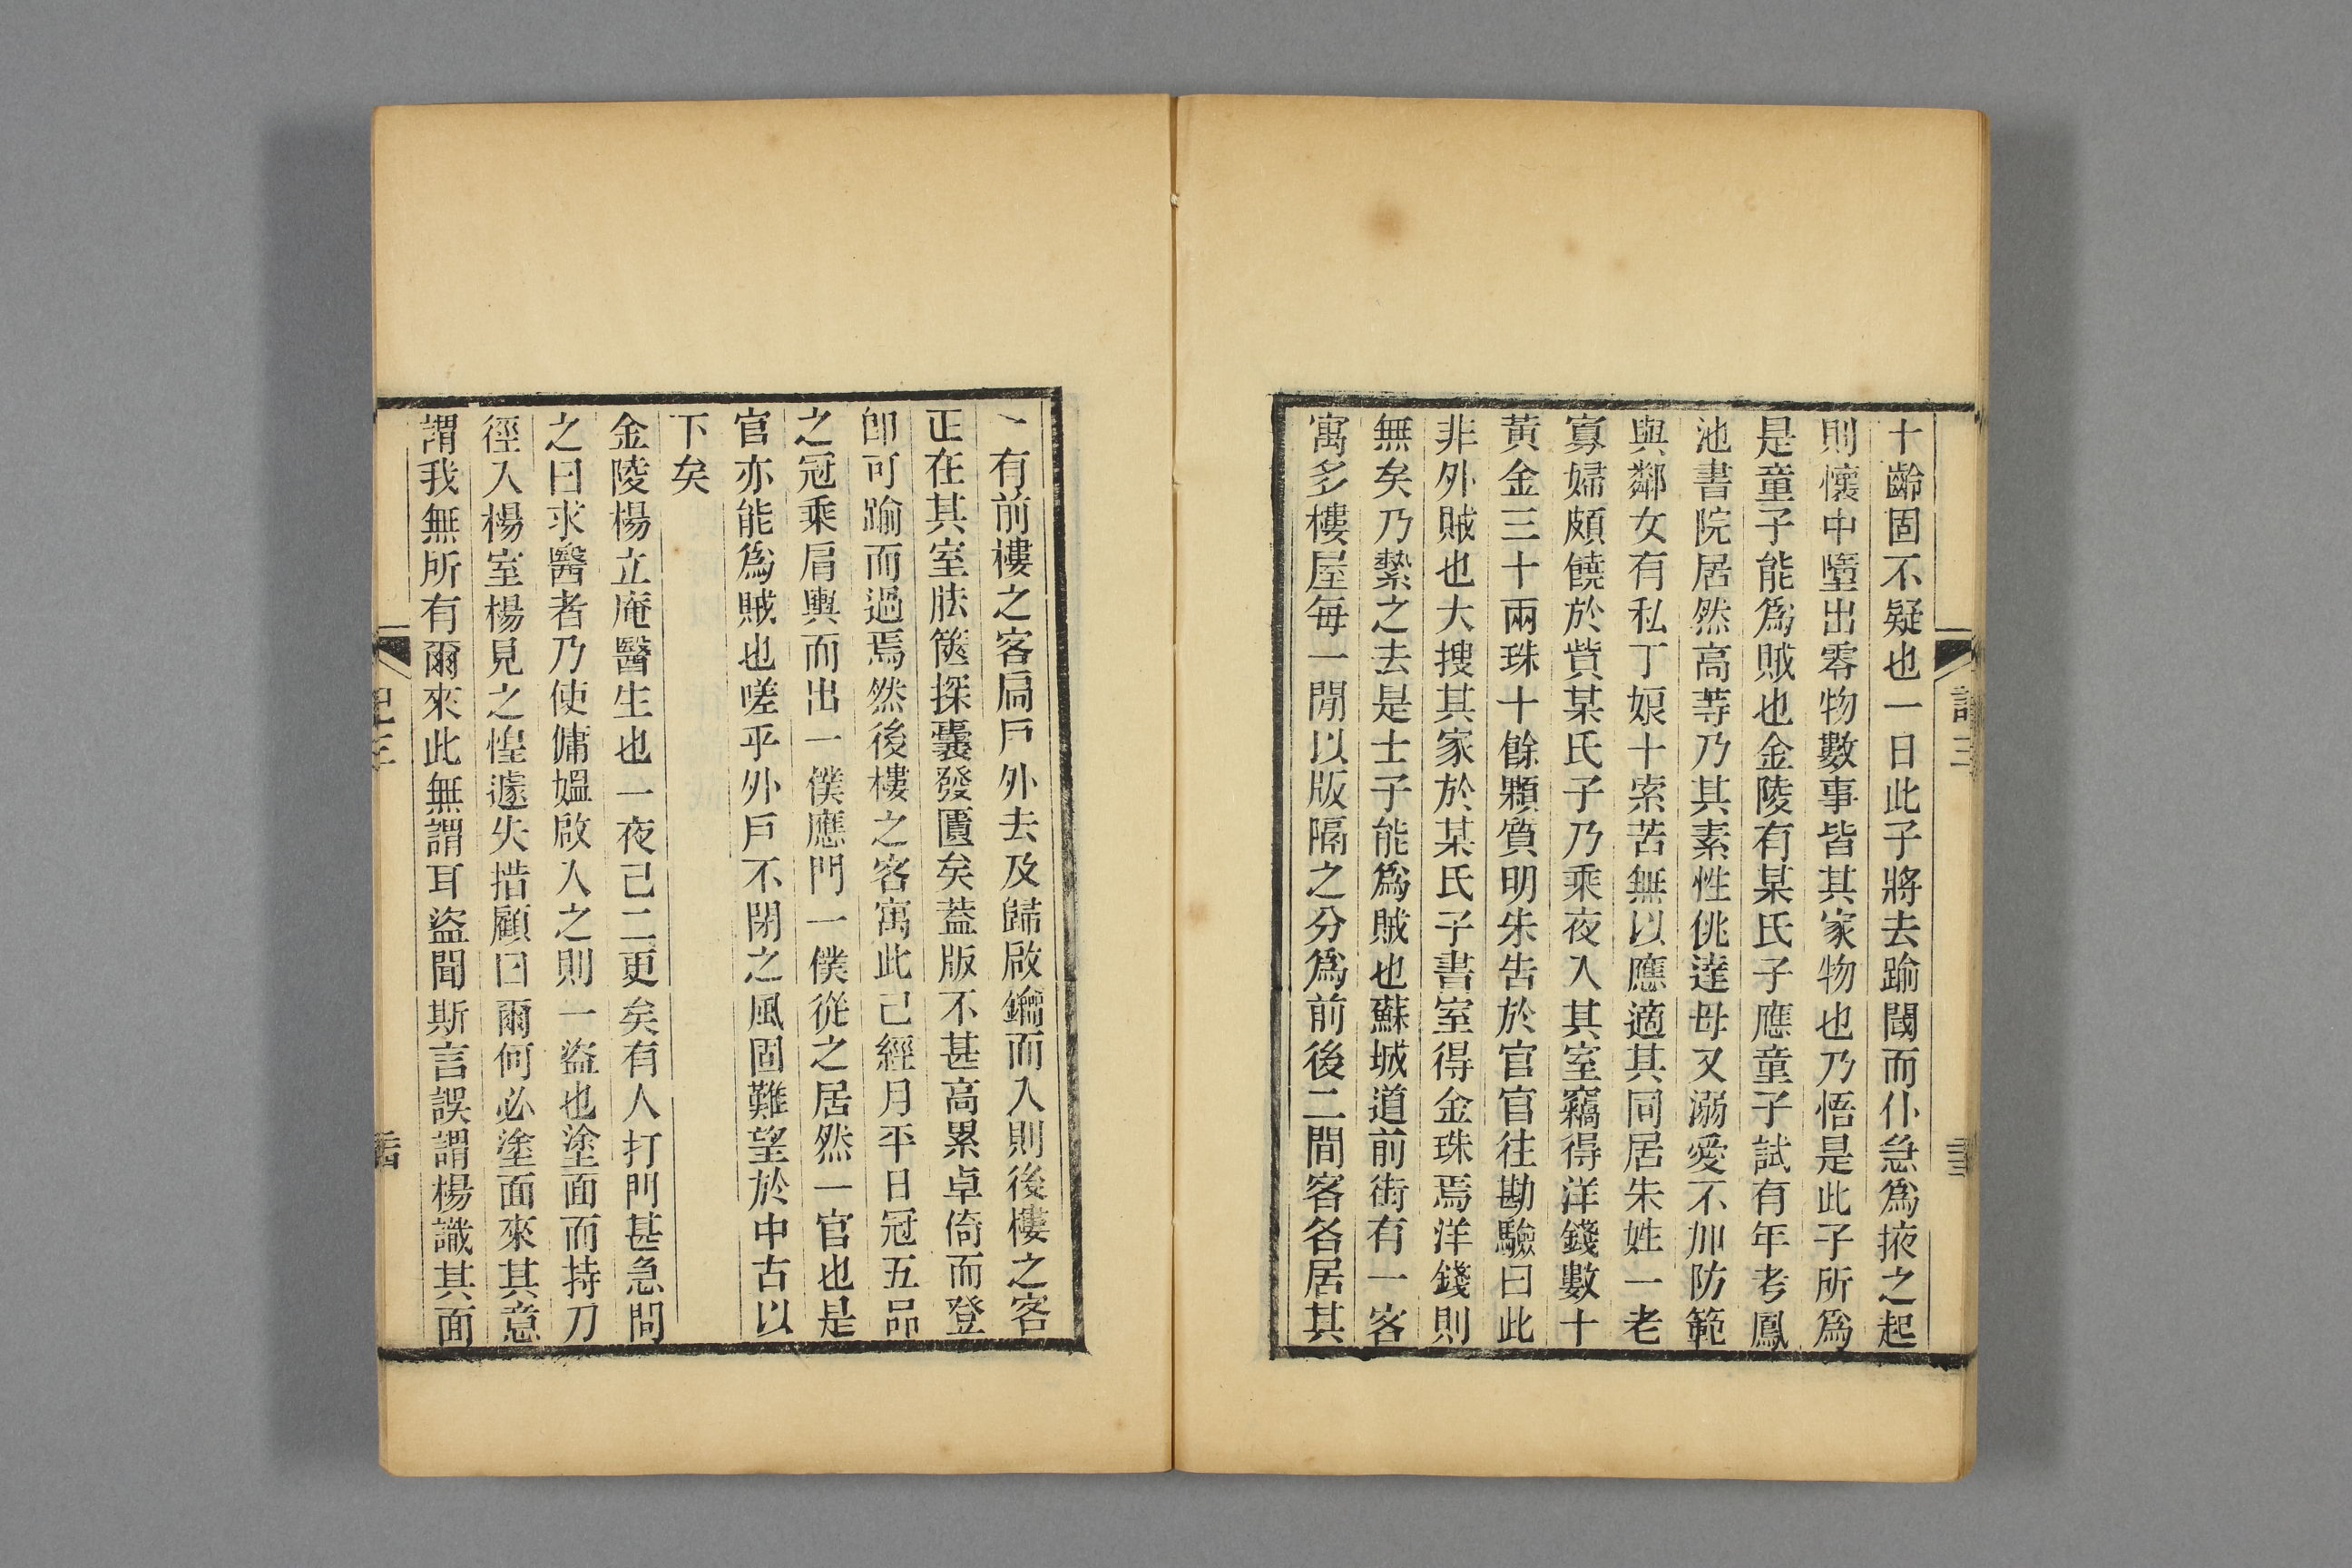 十齡固不疑也一日此子將去踰閾而仆急爲掖之起
則懷中墮出零物數事皆其家物也乃悟是此子所爲
是童子能爲賊也金陵有某氏子應童子試有年考鳳
池書院居然高等乃其素性佻達母又溺愛不加防範
與鄰女有私丁娘十索苦無以應適其同居朱姓一老
寡婦頗饒於貲某氏子乃乘夜入其室竊得洋錢數十
黃金三十兩珠十餘顆質明朱告於官官往勘驗曰此
非外賊也大搜其家於某氏子書室得金珠焉洋錢則
無矣乃縶之去是士子能爲賊也蘇城道前街有一客
寓多樓屋每一閒以版隔之分爲前後二間客各居其
有前樓之客扃戶外去及歸啟鑰而入則後樓之客
正在其室胠篋探囊發匱矣蓋版不甚高累卓倚而登
卽可踰而過焉然後樓之客寓此已經月平日冠五品
之冠乘肩輿而出一僕應門一僕從之居然一官也是
官亦能爲賊也嗟乎外戶不閉之風固難望於中古以
下矣
金陵楊立庵醫生也一夜己二更矣有人打門甚急問
之曰求醫者乃使傭媼啟入之則一盜也塗面而持刀
徑入楊室楊見之惶遽失措顧曰爾何必塗面來其意
謂我無所有爾來此無謂耳盜聞斯言誤謂楊識其面